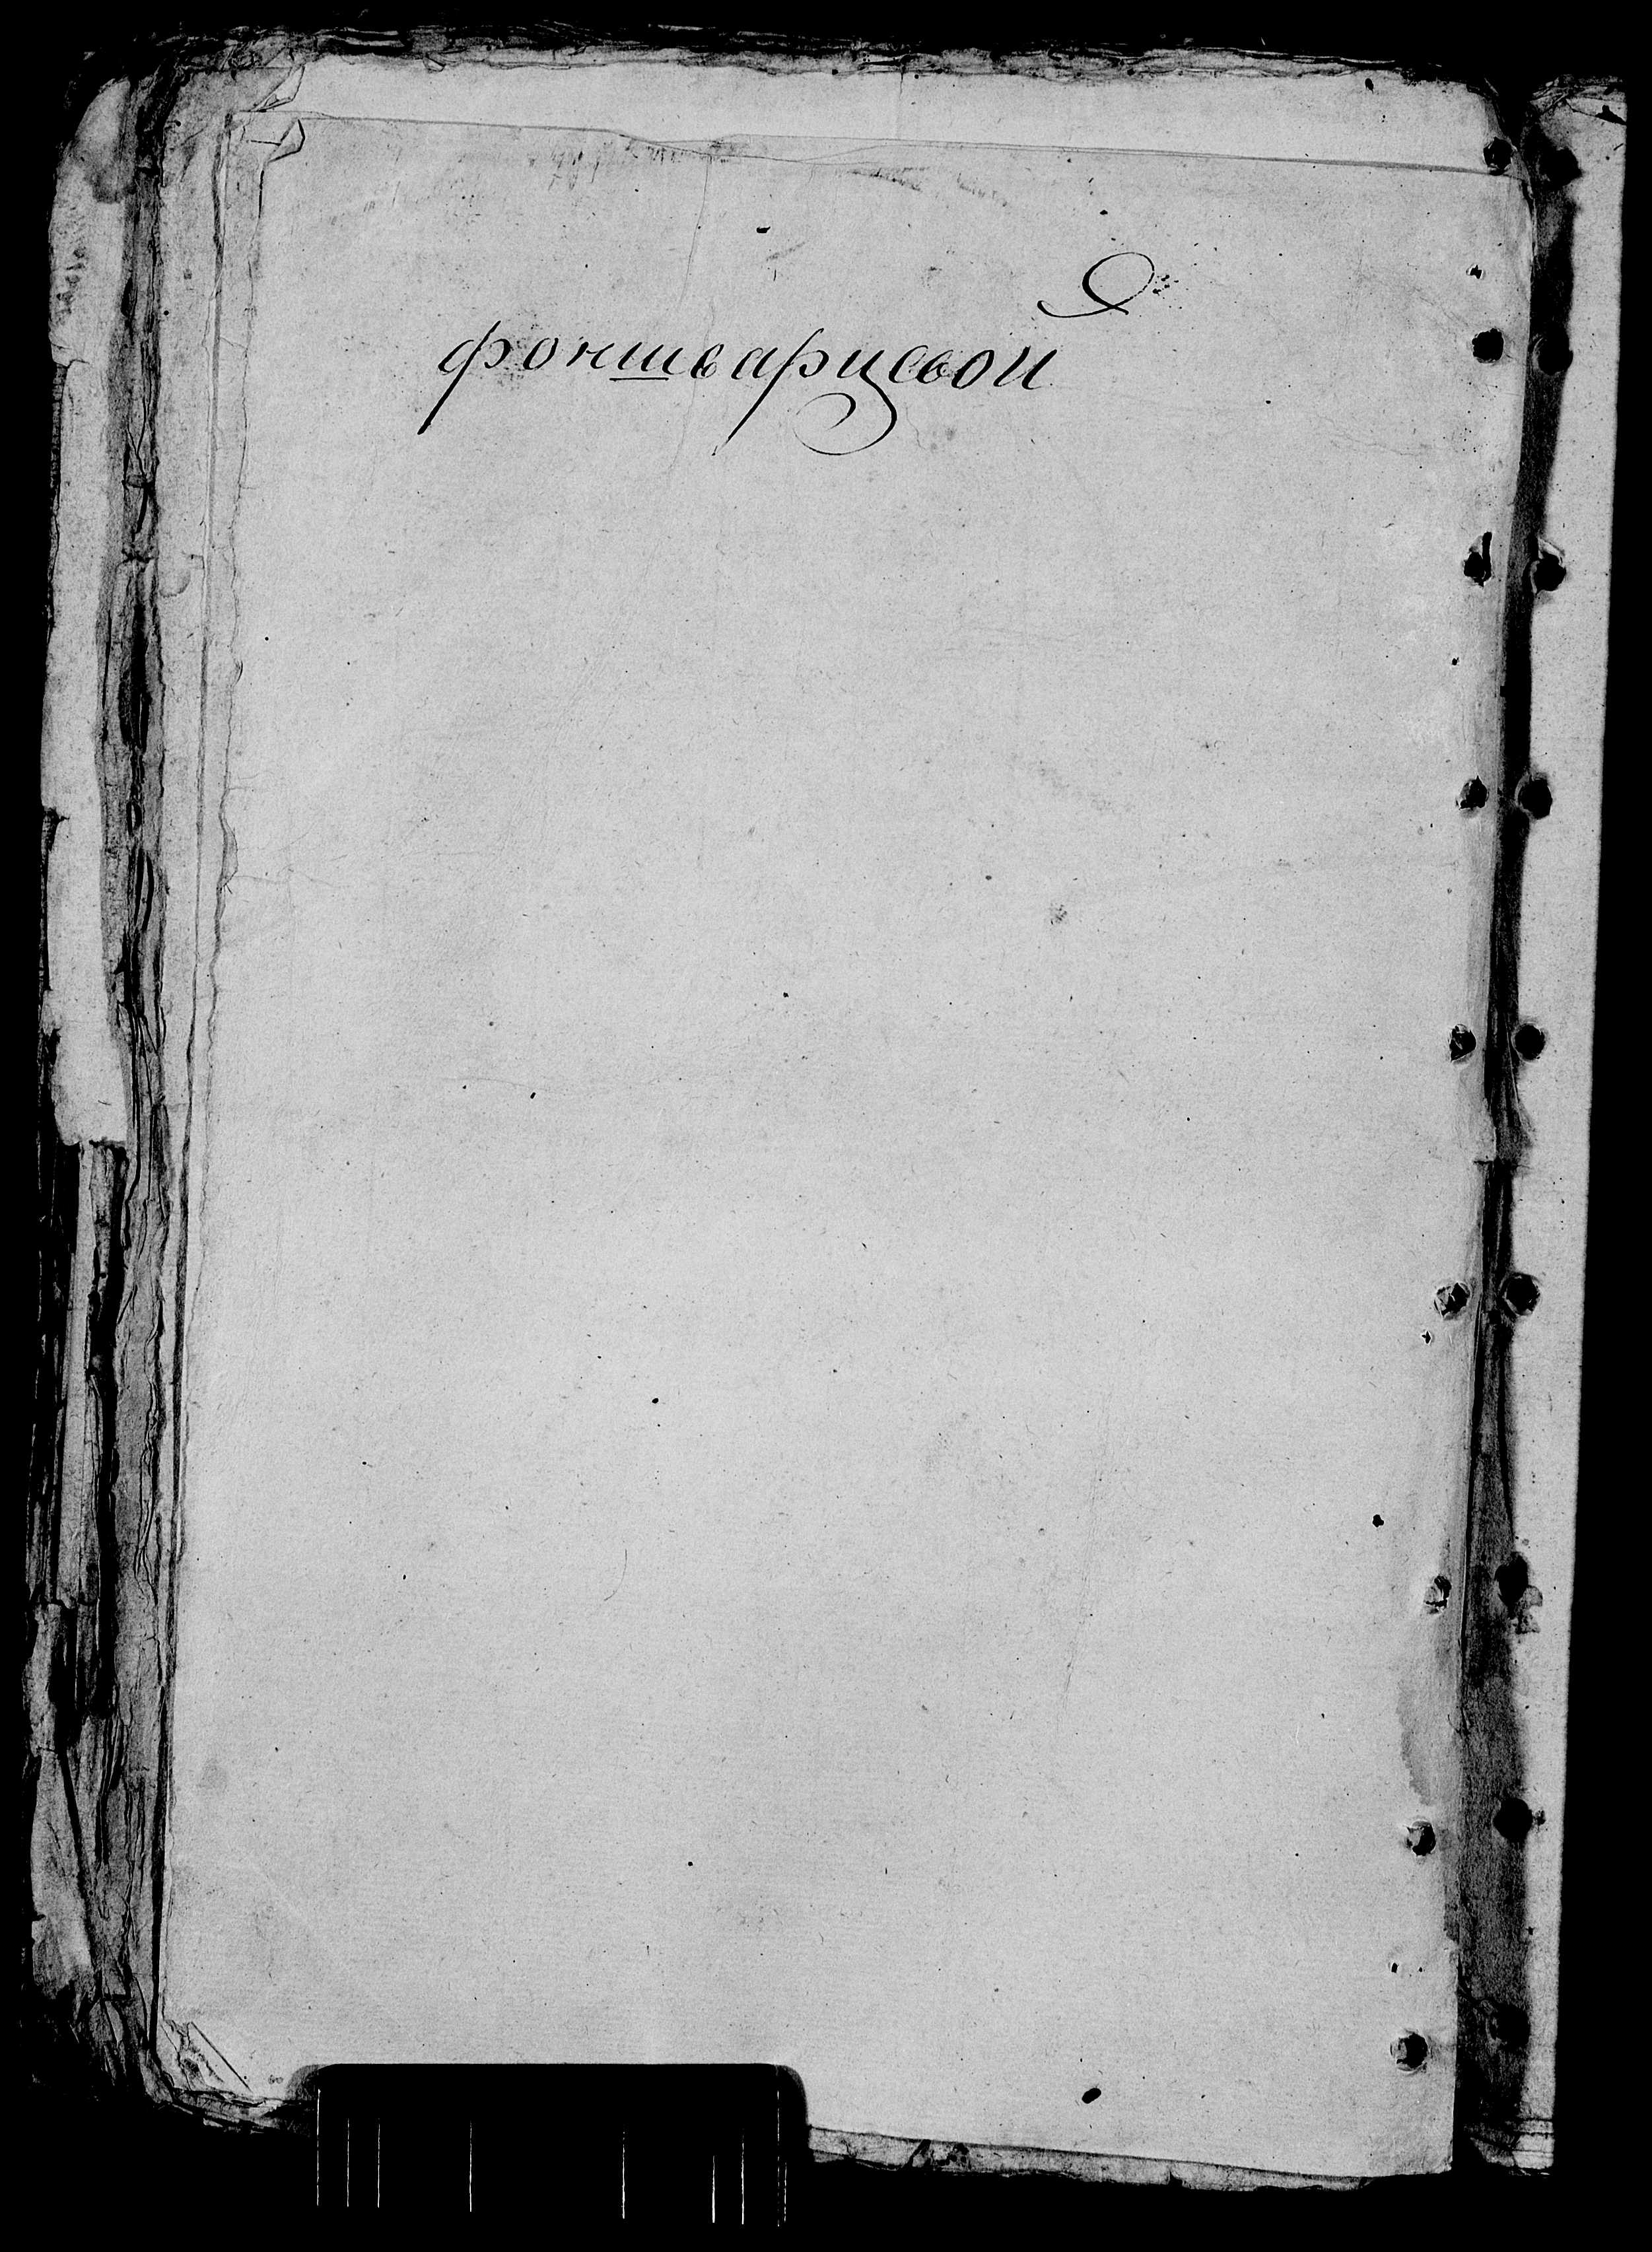 фоншварцевой